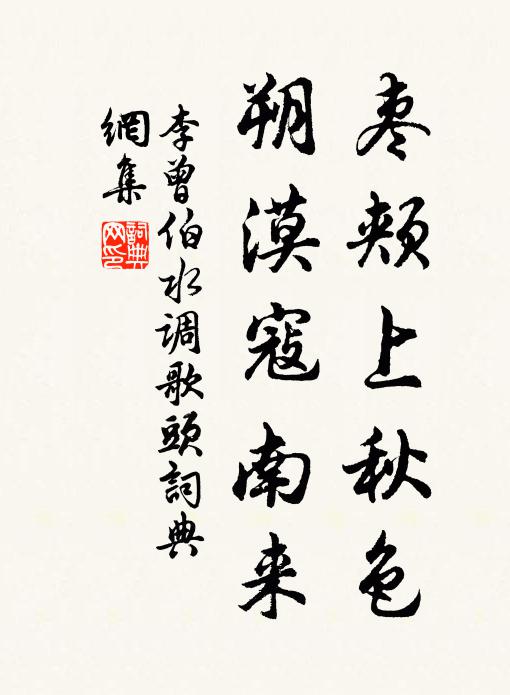 枣颊上秋色
朔漠寇南来
李曾伯水调歌头词典
網集
詞典
网印